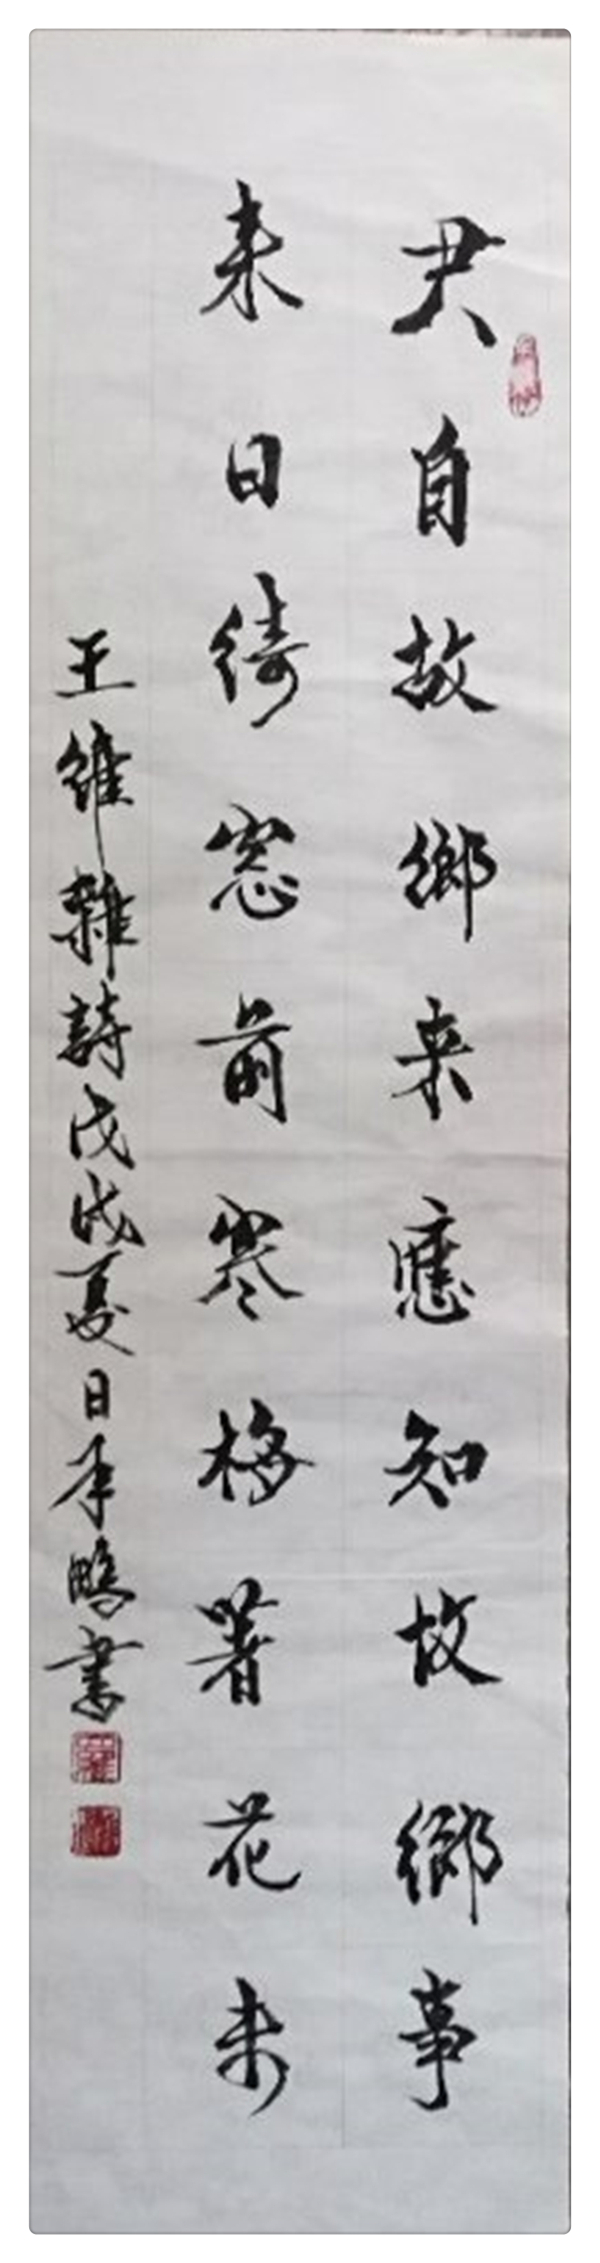 君自故鄉来應知故鄉事
来日绮窓前寒梅著花未
王維雜詩戊戌夏日季鵬書